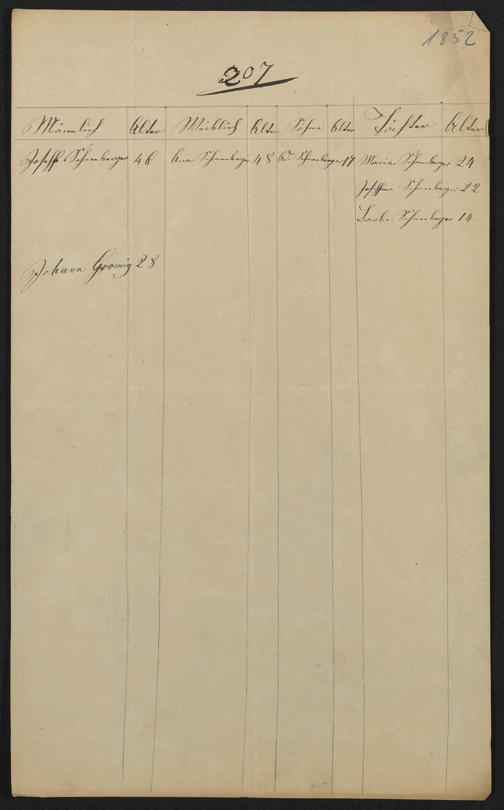 1852
207
Männlich Alter Weiblich Alter Söhne Alter Töchter Alter
Joseph Schneeberger 46 Ana Schneeberger 48 Schneeberger 17 Maria Schneeberger 24
Josephina Schneeberger 22
Barb. Schneeberger 14
Johann Gromig 28